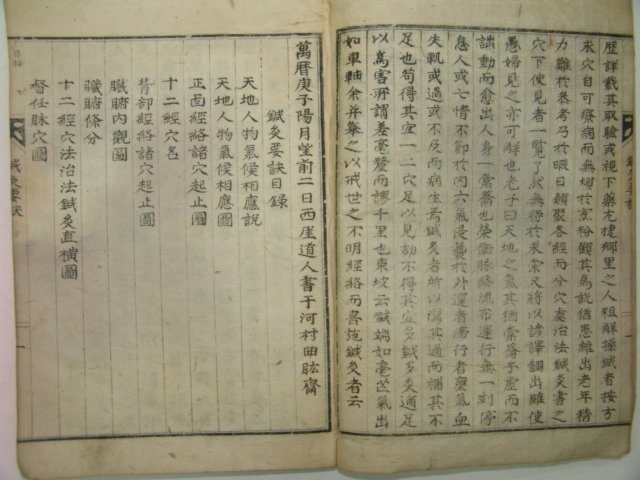 歷詳載其取驗或視下藥尤捷鄉里之人粗解操鍼者按方
求穴自可療病而無煩於京師顧其爲說猶患雜出老年精
力難於參考乃於暇日類聚各經而分穴處治法鍼灸書之
穴下使見者一覽了然無待於求索又將以諺譯翻出雖使
愚婦見之亦可解也老子曰天地之氣其猶橐籥乎虛而不
詘動而愈出人身一橐籥也榮衛脉絡流布運行無一刻停
息人或七情不節於內六氣浸襲於外運者滯行者壅氣血
失軌或過或不及而病生焉鍼灸者所以瀉其過而補其不
足也苟得其宜一二穴足以見効不得其宜多鍼多灸適足
以爲害所謂差毫釐而謬千里也東坡云鍼端如毫芒氣出
如車軸余幷擧之以戒世之不明經絡而喜施鍼灸者云
萬曆庚子陽月望前二日西厓道人書于河村曲肱齋
鍼灸要訣目錄
天地人物氣候相應說
天地人物氣候相應圖
正面經絡諸穴起止圖
十二經穴名
背部經絡諸穴起止圖
臟腑內觀圖
臟腑條分
十二經穴法治法鍼灸直橫圖
督任脉穴圖
鍼灸要訣